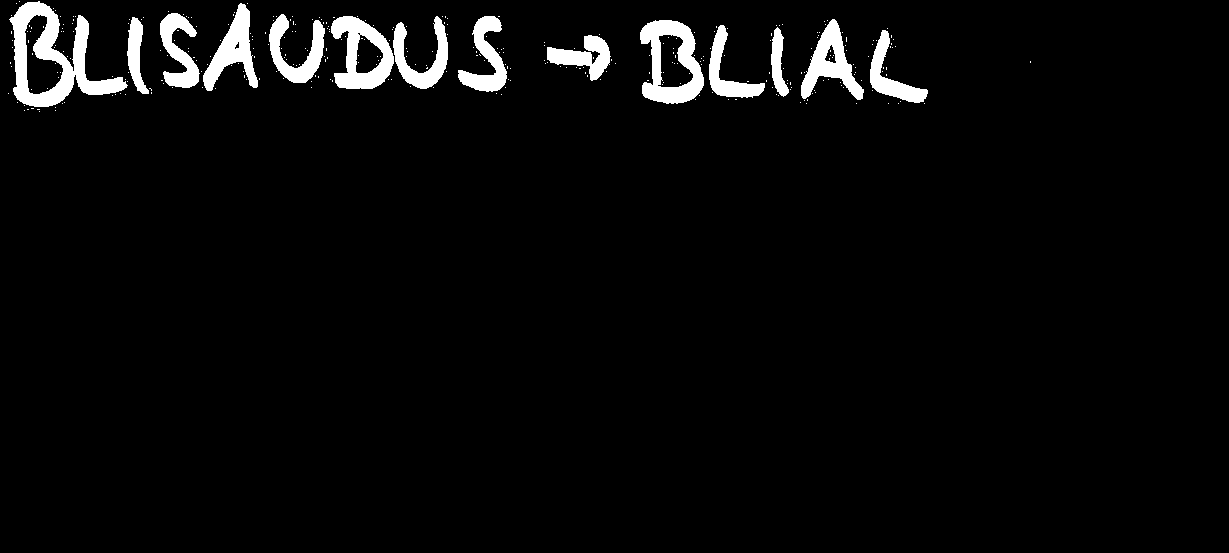 BLISAUDUS → BLIAL